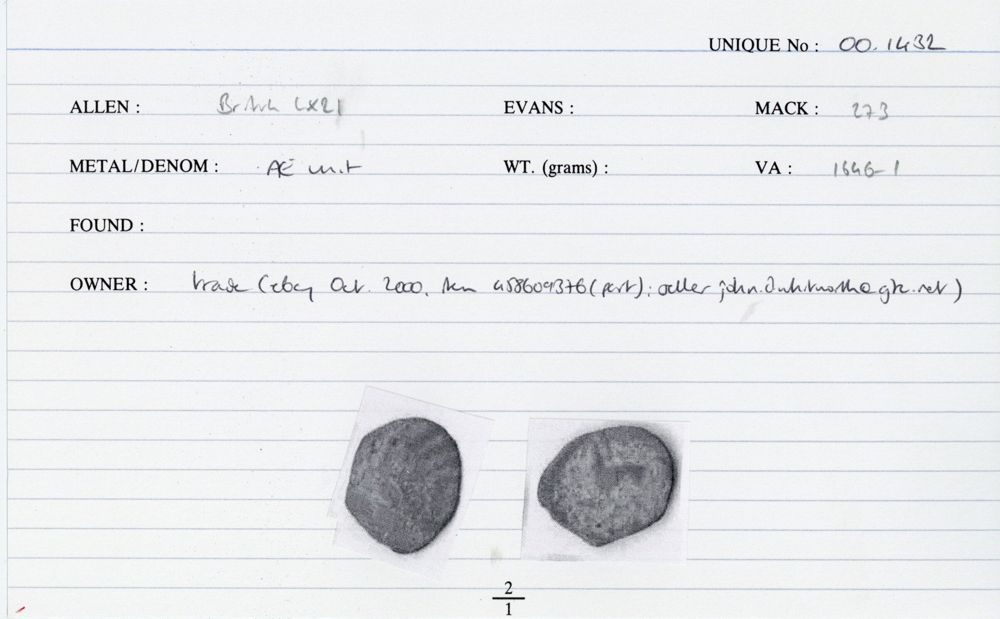 UNIQUE No : 00.1432
ALLEN : British LX21 EVANS : MACK : 273
METAL/DENOM : Æ unit WT. (grams) : VA : 1646-1
FOUND :
OWNER : trade (ebay Oct. 2000, item 458609376 (part); seller
2
1